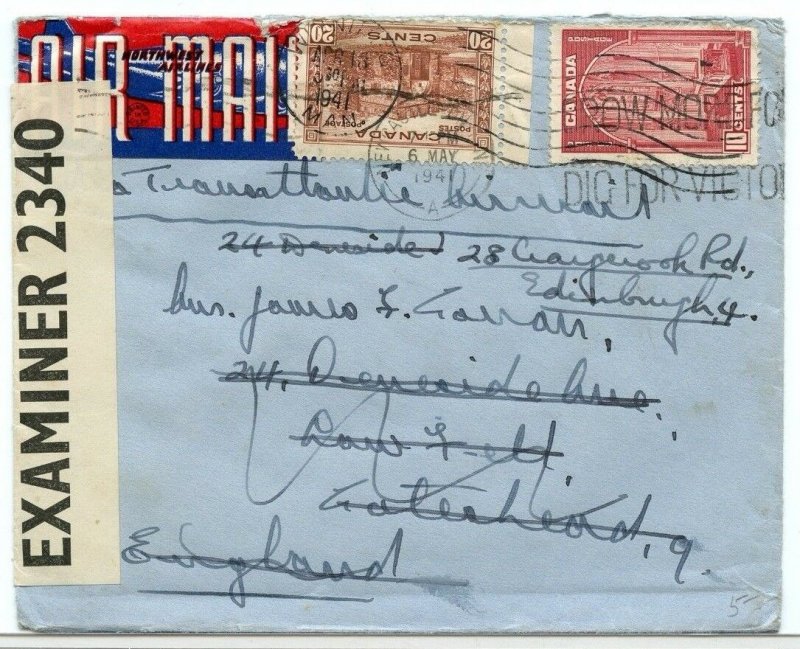 AIR MAIL
NORTHWEST
AIRLINES
20 CENTS 20
CANADA
POSTES POSTAGE
APR 13
1941
CANADA
10 CENTS
6 MAY
1941
A
GROW MORE FOOD
DIG FOR VICTORY
EXAMINER 2340
Transatlantic Airmail
28 Craigcrook Rd.,
Edinburgh, 4.
Mrs. James F.
24, Deneside Ave.
Low Fell,
Gateshead, 9.
England
5-